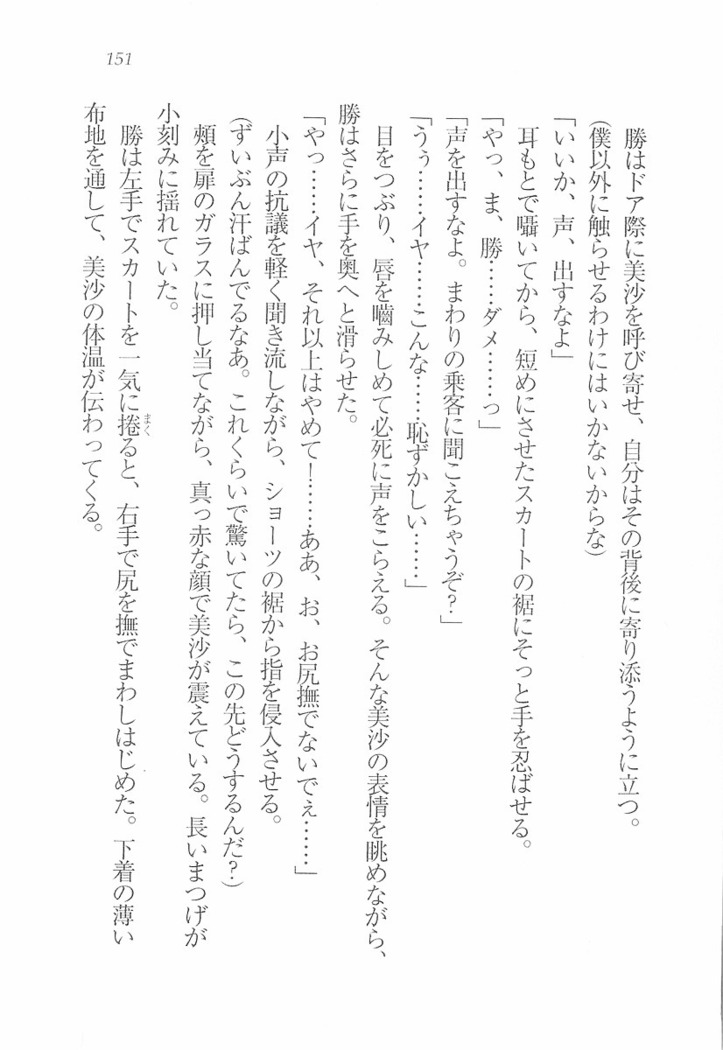 151
勝はドア際に美沙を呼び寄せ、自分はその背後に寄り添うように立つ。
(僕以外に触らせるわけにはいかないからな)
「いいか、声、出すなよ」
耳もとで囁いてから、短めにさせたスカートの裾にそっと手を忍ばせる。
「やっ、ま、勝……ダメ……っ」
「声を出すなよ。まわりの乗客に聞こえちゃうぞ?」
「うぅ……イヤ……こんな……恥ずかしい……」
目をつぶり、唇を嚙みしめて必死に声をこらえる。そんな美沙の表情を眺めながら、
勝はさらに手を奥へと滑らせた。
「やっ……イヤ、それ以上はやめて!……ああ、お、お尻撫でないでぇ……」
小声の抗議を軽く聞き流しながら、ショーツの裾から指を侵入させる。
(ずいぶん汗ばんでるなあ。これくらいで驚いてたら、この先どうするんだ?)
頰を扉のガラスに押し当てながら、真っ赤な顔で美沙が震えている。長いまつげが
小刻みに揺れていた。
勝は左手でスカートを一気に捲ると、右手で尻を撫でまわしはじめた。下着の薄い
まく
布地を通して、美沙の体温が伝わってくる。